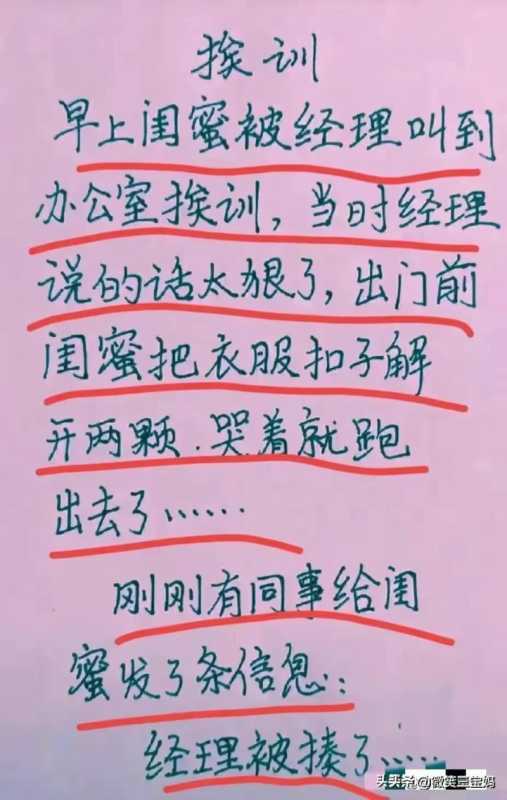 挨训
早上闺蜜被经理叫到
办公室挨训，当时经理
说的话太狠了，出门前
闺蜜把衣服扣子解
开两颗.哭着就跑
出去了……
刚刚有同事给闺
蜜发了条信息：
经理被揍了……
头条@微笑三宝妈